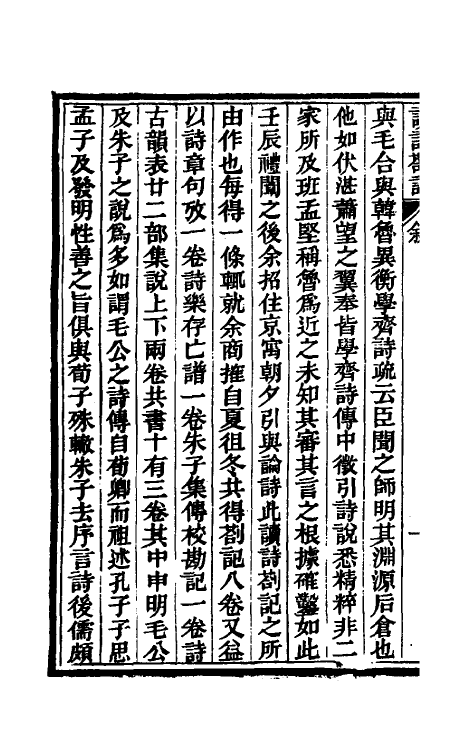 與毛合與韓魯異衡學齊詩疏云臣聞之師明其淵源后倉也
他如伏湛蕭望之翼奉皆學齊詩傳中徵引詩說悉精粹非二
家所及班孟堅稱魯為近之未知其審其言之根據確鑿如此
壬辰禮闈之後余招住京寓朝夕引與論詩此讀詩劄記之所
由作也每得一條輒就余商搉自夏徂冬共得劄記八卷又益
以詩章句攷一卷詩樂存亡譜一卷朱子集傳校勘記一卷詩
古韻表廿二部集說上下兩卷共書十有三卷其中申明毛公
及朱子之說為多如謂毛公之詩傳自荀卿而祖述孔子子思
孟子及發明性善之旨俱與荀子殊轍朱子去序言詩後儒頗